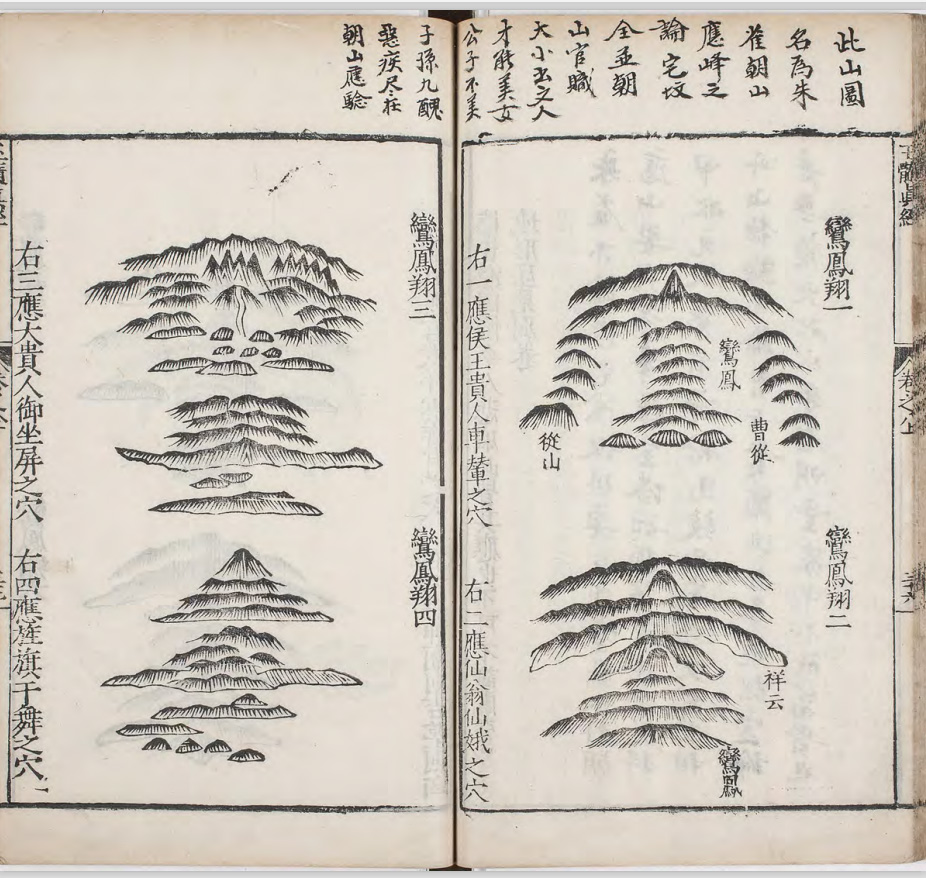 此山圖
名為朱
雀朝山
應峰之
論宅坟
全並朝
山官職
大小出文人
才能美女
公子不美
子孫九醜
惡疾尽在
朝山應驗
鸞鳳翔一
鸞鳳
曹從
從山
右一應侯王貴人車輦之穴
鸞鳳翔二
祥云
鸞鳳
右二應仙翁仙娥之穴
鸞鳳翔三
右三應大貴人御坐屏之穴
鸞鳳翔四
右四應旌旗于舞之穴